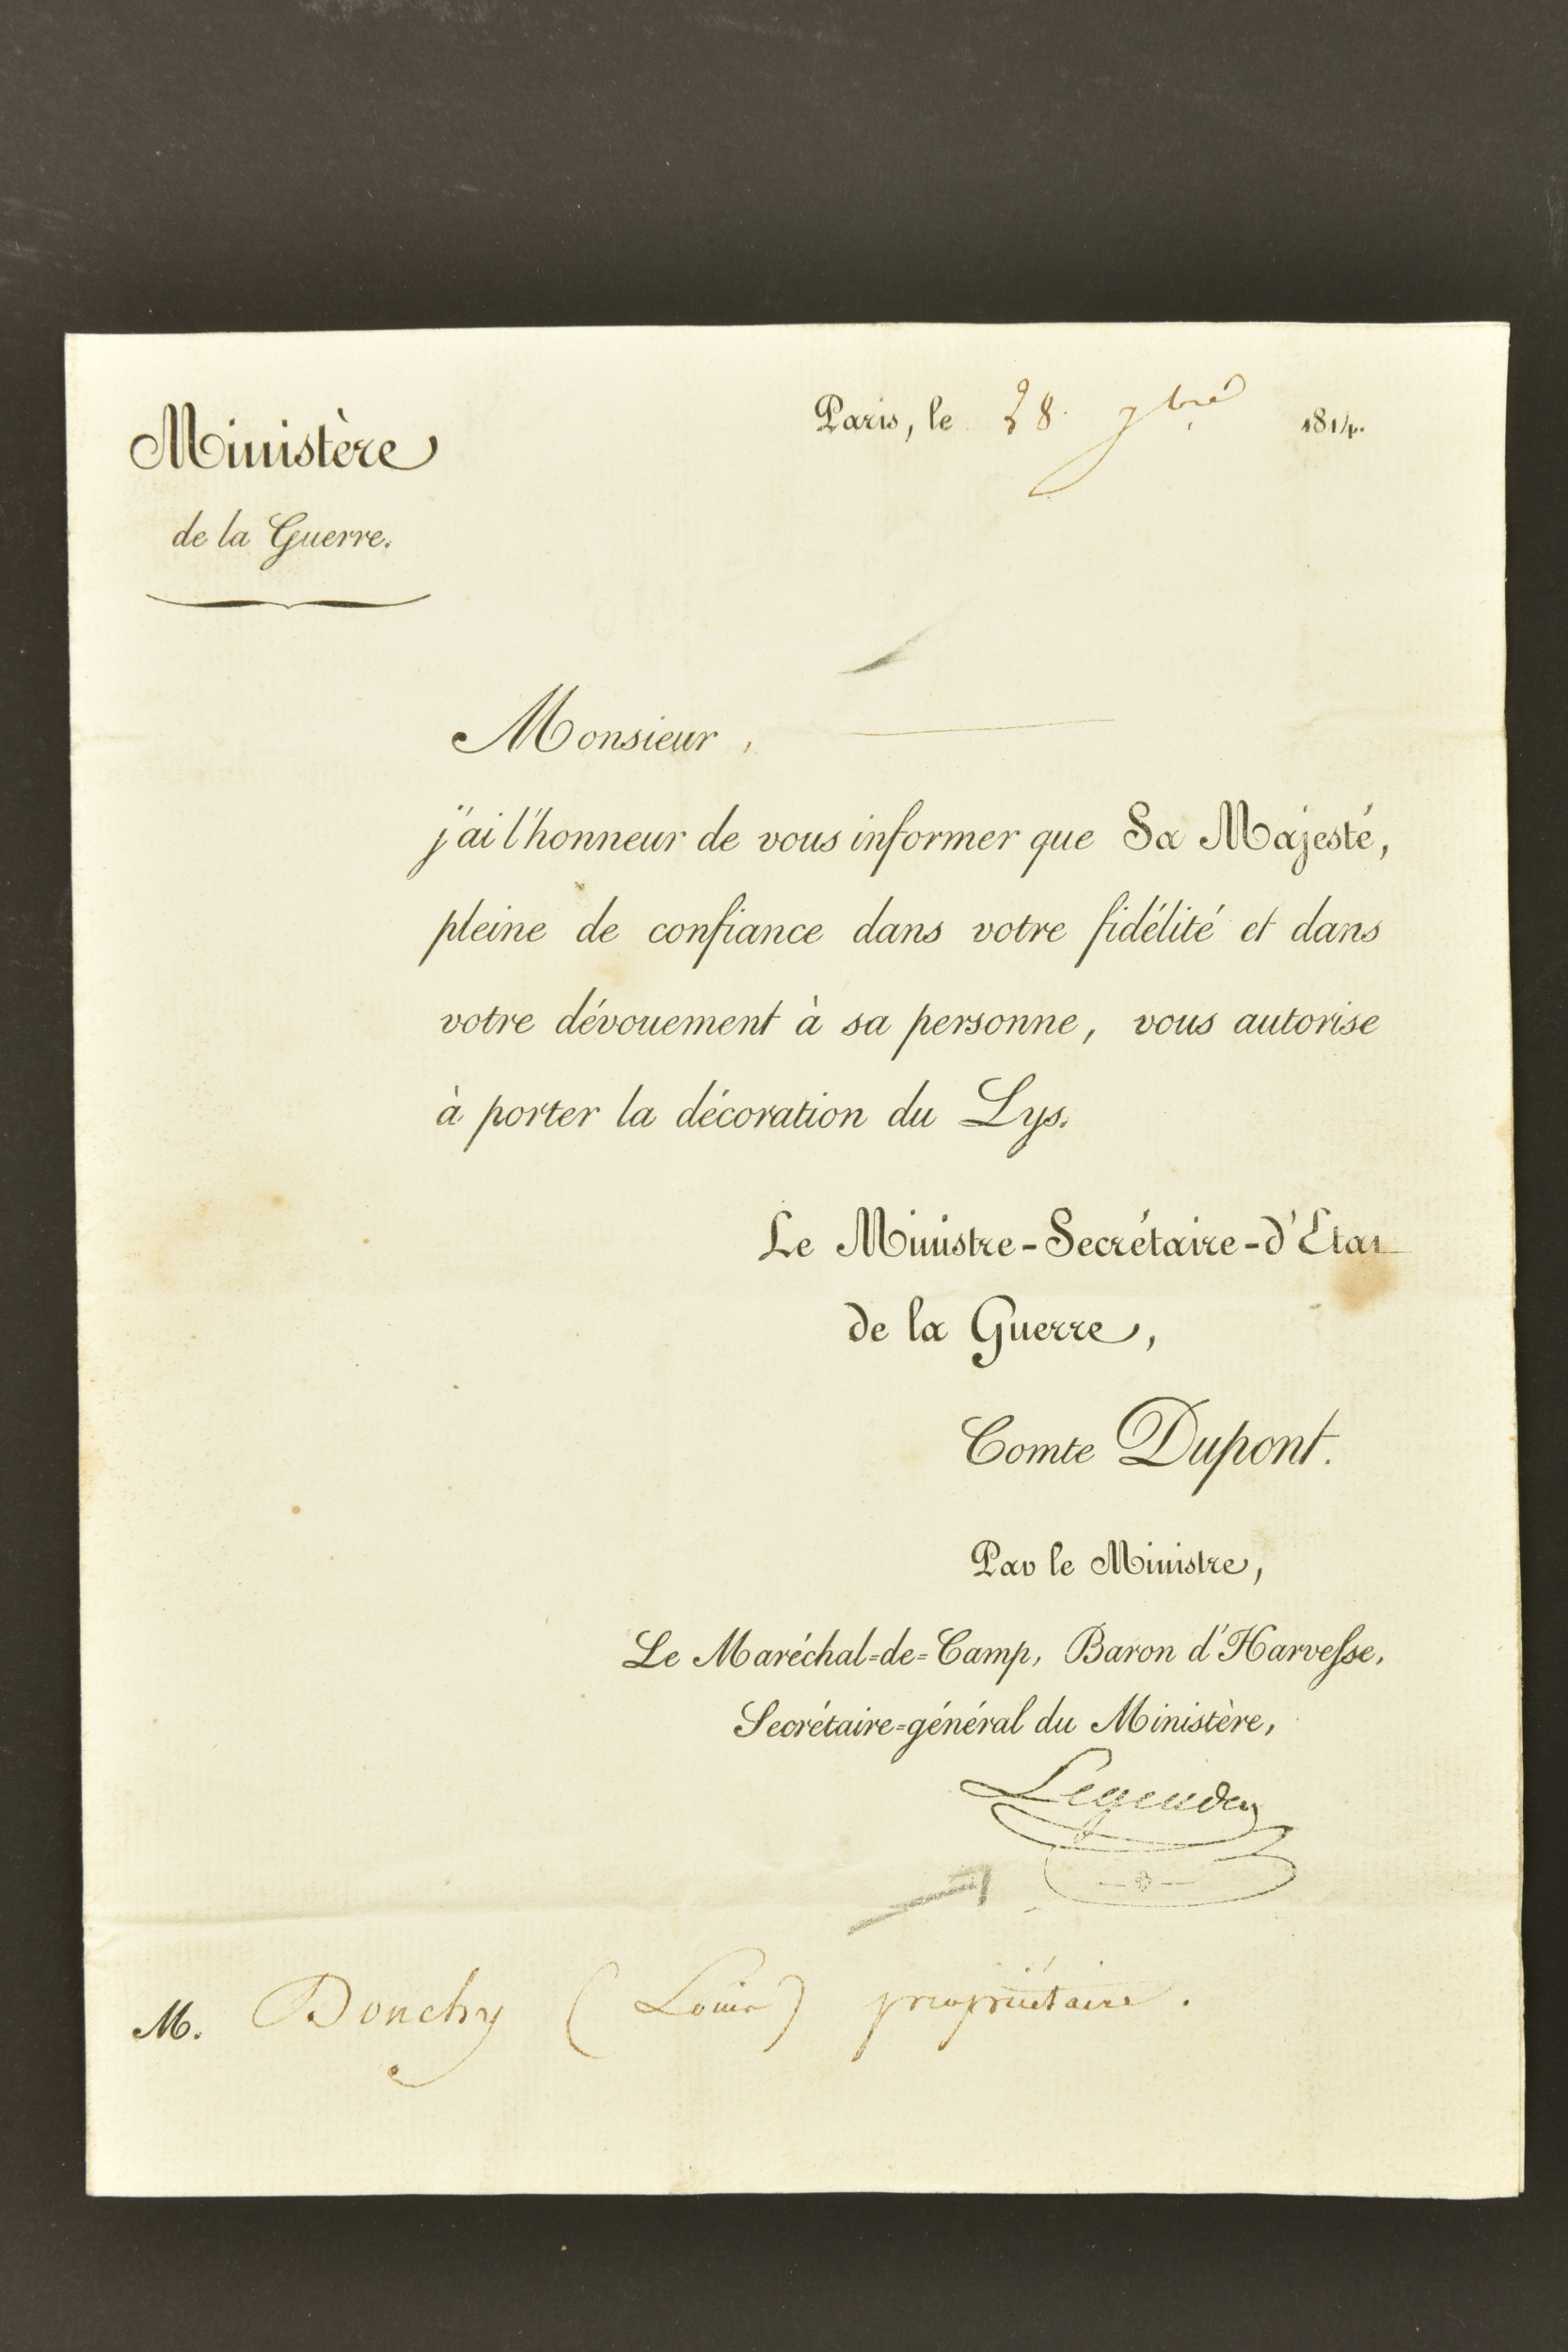 Ministère
de la Guerre.
Paris, le 28. 7bre 1814.
Monsieur,
j'ai l'honneur de vous informer que Sa Majesté,
pleine de confiance dans votre fidélité et dans
votre dévouement à sa personne, vous autorise
à porter la décoration du Lys.
Le Ministre-Secrétaire-d'Etat
de la Guerre,
Comte Dupont.
Par le Ministre,
Le Maréchal-de-Camp, Baron d'Harvesse,
Secrétaire-général du Ministère,
M. Donchy (Louis) propriétaire.